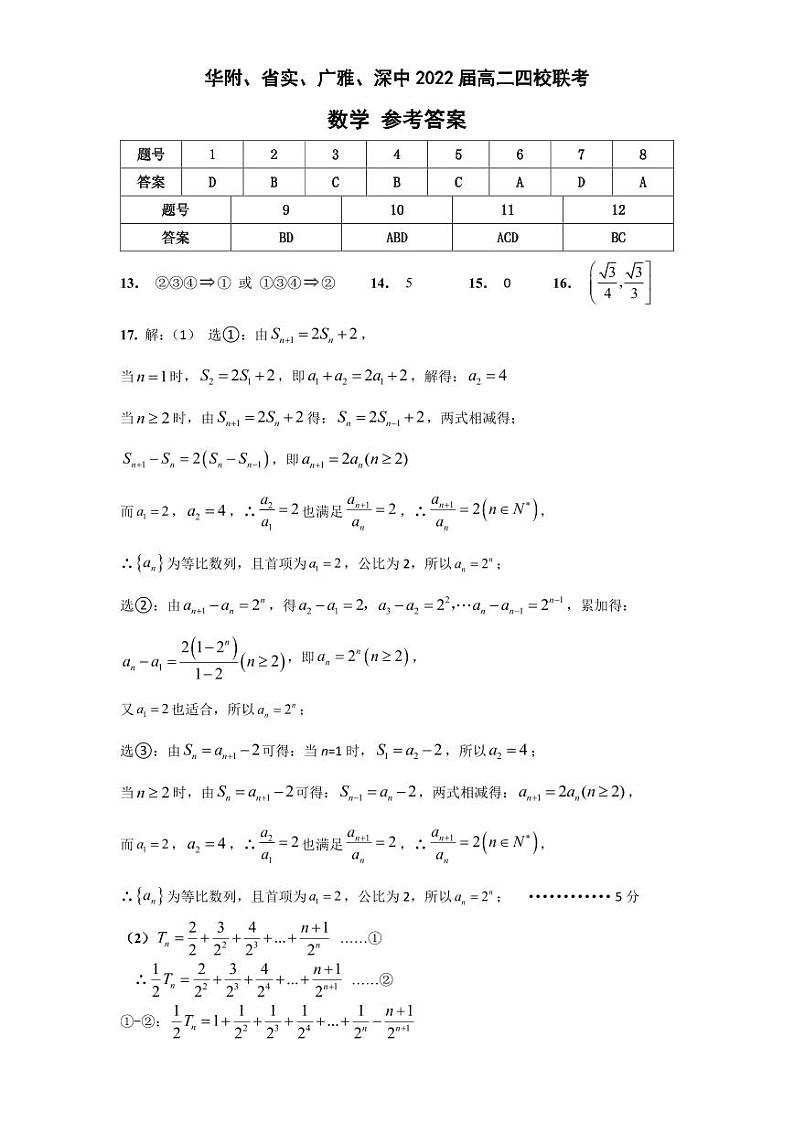 华附、省实、广雅、深中 2022 届高二四校联考
数学 参考答案
题号 1 2 3 4 5 6 7 8
答案 D B C B C A D A
题号 9 10 11 12
答案 BD ABD ACD BC
13. ②③④⇒① 或 ①③④⇒② 14. 5 15. 0 16. (√3/4, √3/3]
17. 解:(1) 选①:由 Sₙ₊₁ = 2Sₙ + 2,
当 n = 1 时, S₂ = 2S₁ + 2,即 a₁ + a₂ = 2a₁ + 2,解得: a₂ = 4
当 n ≥ 2 时,由 Sₙ₊₁ = 2Sₙ + 2 得: Sₙ = 2Sₙ₋₁ + 2,两式相减得;
Sₙ₊₁ − Sₙ = 2(Sₙ − Sₙ₋₁),即 aₙ₊₁ = 2aₙ(n ≥ 2)
而 a₁ = 2, a₂ = 4,∴ a₂/a₁ = 2 也满足 aₙ₊₁/aₙ = 2,∴ aₙ₊₁/aₙ = 2(n ∈ N*),
∴{aₙ}为等比数列,且首项为 a₁ = 2,公比为 2,所以 aₙ = 2ⁿ;
选②:由 aₙ₊₁ − aₙ = 2ⁿ,得 a₂ − a₁ = 2, a₃ − a₂ = 2²,⋯ aₙ − aₙ₋₁ = 2ⁿ⁻¹,累加得:
aₙ − a₁ = 2(1−2ⁿ)/(1−2) (n ≥ 2),即 aₙ = 2ⁿ(n ≥ 2),
又 a₁ = 2 也适合,所以 aₙ = 2ⁿ;
选③:由 Sₙ = aₙ₊₁ − 2 可得:当 n=1 时, S₁ = a₂ − 2,所以 a₂ = 4;
当 n ≥ 2 时,由 Sₙ = aₙ₊₁ − 2 可得: Sₙ₋₁ = aₙ − 2,两式相减得: aₙ₊₁ = 2aₙ(n ≥ 2),
而 a₁ = 2, a₂ = 4,∴ a₂/a₁ = 2 也满足 aₙ₊₁/aₙ = 2,∴ aₙ₊₁/aₙ = 2(n ∈ N*),
∴{aₙ}为等比数列,且首项为 a₁ = 2,公比为 2,所以 aₙ = 2ⁿ; ············ 5 分
(2) Tₙ = 2/2 + 3/2² + 4/2³ + ... + (n+1)/2ⁿ ……①
∴ 1/2 Tₙ = 2/2² + 3/2³ + 4/2⁴ + ... + (n+1)/2ⁿ⁺¹ ……②
①-②: 1/2 Tₙ = 1 + 1/2² + 1/2³ + 1/2⁴ + ... + 1/2ⁿ − (n+1)/2ⁿ⁺¹